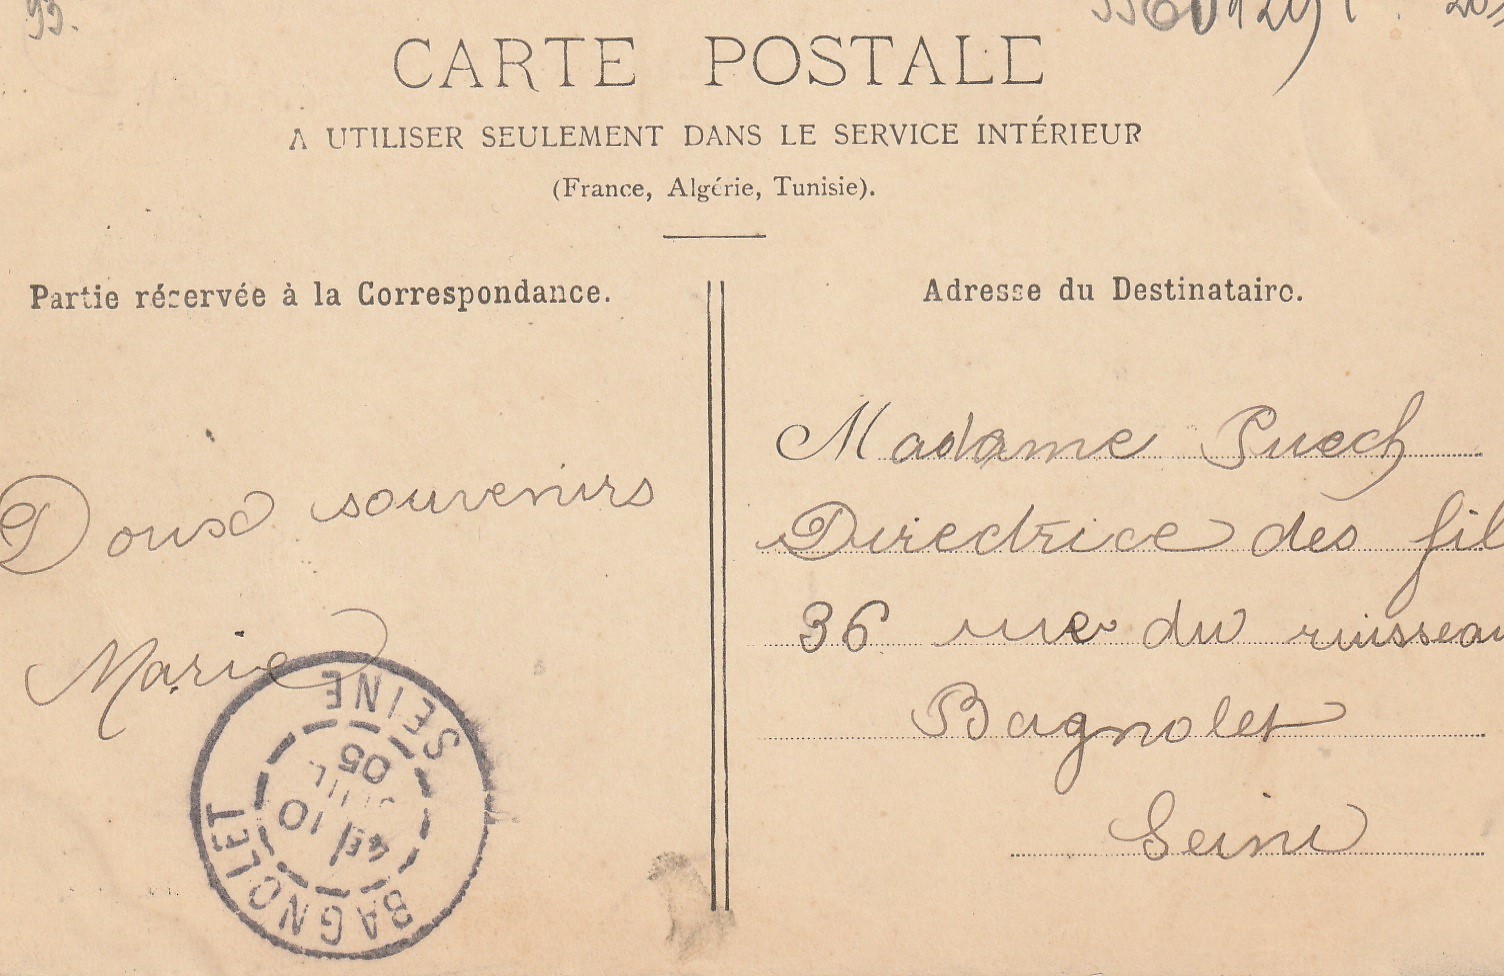 93.
CARTE POSTALE
A UTILISER SEULEMENT DANS LE SERVICE INTÉRIEUR
(France, Algérie, Tunisie).
Partie réservée à la Correspondance.
Doux souvenirs
Marie
Adresse du Destinataire.
Madame Puech
Directrice des fil
36 rue du ruisseau
Bagnolet
Seine
BAGNOLET SEINE
10
JUIL
05